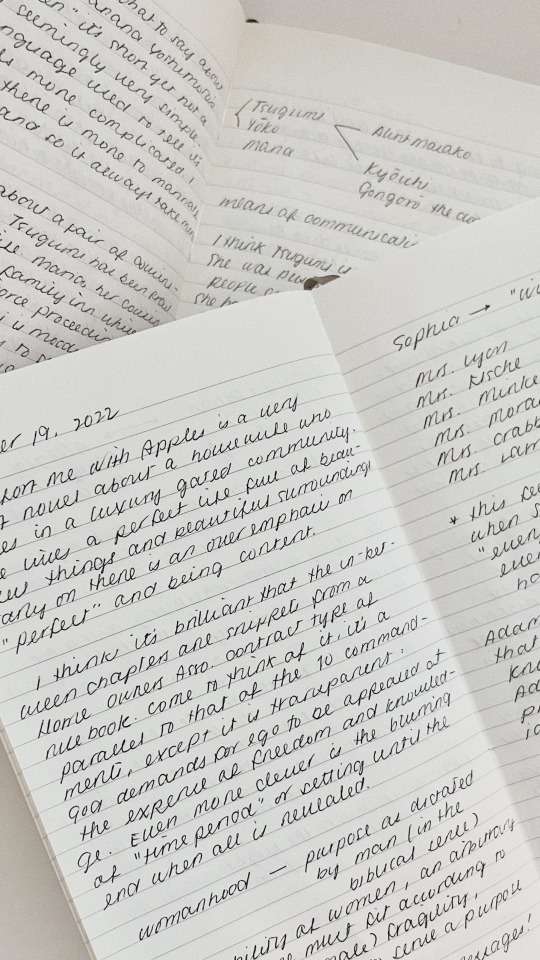 what to say about
anana yoshimoto's
en." it's short yet not a
seemingly very simple.
nguage used to tell it
is more complicated. I
there is more to
and so it always take
about a pair of cousin-
Tsugumi has been
life. Maria, her cousin
family inn which
orce proceedin
i is mood
y to
Tsugumi
Yōko
Maria
Aunt Masako
Kyōichi
Gongorō the do
means of communicati
I think Tsugumi is
she was
people
she
er 19, 2022
hort me with Apples is a very
t novel about a housewife who
es in a luxury gated community.
e lives a perfect life full of beau-
ful things and beautiful surroundings
early on there is an over emphasis on
"perfect" and being content.
I think it's brilliant that the in-bet-
ween chapters are snippets from a
Home Owners Asso. contract type of
rulebook. Come to think of it, it's a
parallel to that of the 10 command-
ments, except it is transparent.
god demands for ego to be appeased at
the expense of freedom and knowled-
ge. Even more clever is the blurring
of "time period" or setting until the
end when all is revealed.
womanhood — purpose as dictated
by man (in the
biblical sense)
bility of women, an arbitrary
must fit according to
male) fragility,
serve a purpose
Sophia → "wi
Mrs. Lyon
Mrs. Fische
Mrs. Minke
Mrs. Mora
Mrs. Crabb
Mrs. Lam
* this
when s
"every
eve
ho
Adam
that
kno
Ad
p